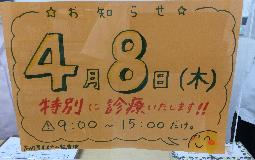 ☆お知らせ☆
4月8日(木)
特別に診療いたします!!
⚠9:00～15:00だけ。